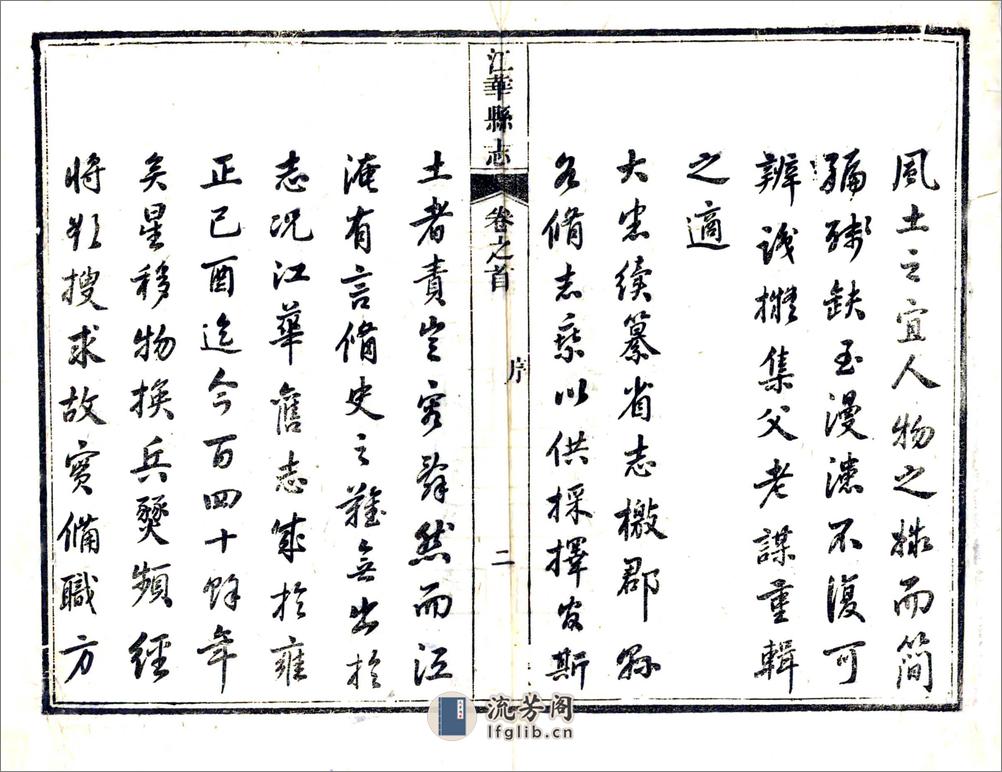 風土之宜人物之而簡
編殘缺至漫漶不復可
辨識擬集父老謀重輯
之適
大憲續纂省志檄郡縣
各脩志乘以供採擇官斯
江華縣志 卷之首 序 二
土者責豈容辭然而江
淹有言脩史之難無出於
志况江華舊志成於雍
正已酉迄今百四十餘年
矣星移物換兵燹頻經
將欲搜求故實備職方
流芳阁
lfglib.cn